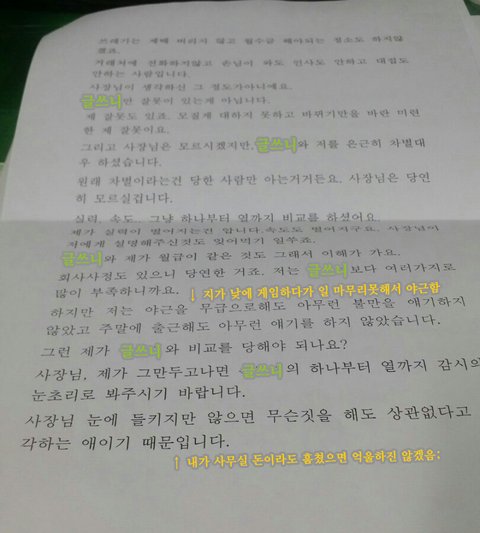 쓰레기는 제때 버리지 않고 월수금 해야되는 청소도 하지않
겠죠.
거래처에 전화하지않고 손님이 와도 인사도 안하고 대접도
안하는 사람입니다.
사장님이 생각하신 그 정도가아니에요.
글쓰니만 잘못이 있는게 아닙니다.
제 잘못도 있죠. 모질게 대하지 못하고 바뀌기만을 바란 미련
한 제 잘못이요.
그리고 사장님은 모르시겠지만, 글쓰니와 저를 은근히 차별대
우 하셨습니다.
원래 차별이라는건 당한 사람만 아는거거든요. 사장님은 당연
히 모르실겁니다.
실력, 속도, 그냥 하나부터 열까지 비교를 하셨어요.
제가 실력이 떨어지는건 압니다.속도도 떨어지구요. 사장님이
저에게 설명해주신것도 잊어먹기 일쑤죠.
글쓰니와 제가 월급이 같은 것도 그래서 이해가 가요.
회사사정도 있으니 당연한 거죠. 저는 글쓰니보다 여러가지로
많이 부족하니까요. ↓ 지가 낮에 게임하다가 일 마무리못해서 야근함
하지만 저는 야근을 무급으로해도 아무런 불만을 얘기하지
않았고 주말에 출근해도 아무런 얘기를 하지 않았습니다.
그런 제가 글쓰니와 비교를 당해야 되나요?
사장님, 제가 그만두고나면 글쓰니의 하나부터 열까지 감시의
눈초리로 봐주시기 바랍니다.
사장님 눈에 들키지만 않으면 무슨짓을 해도 상관없다고
각하는 애이기 때문입니다.
↑ 내가 사무실 돈이라도 훔쳤으면 억울하진 않겠음;